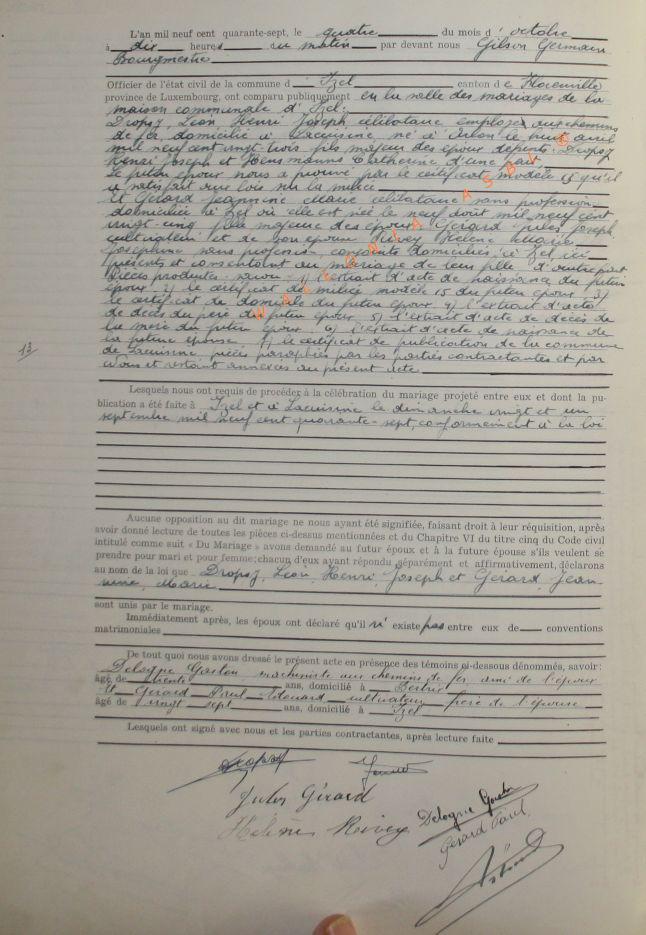 L'an mil neuf cent quarante-sept, le quatre du mois d' octobre
à dix heures du matin par devant nous Gilson Germain
Bourgmestre
Officier de l'état civil de la commune d' Izel canton de Florenville
province de Luxembourg, ont comparu publiquement en la salle des mariages de la
maison communale d' Izel.
Dropsy, Léon Henri Joseph célibataire employé aux chemins
de fer, domicilié à Lacuisine né à Arlon le huit avril
mil neuf cent vingt-trois fils majeur des époux défunts Dropsy
Henri Joseph et Hensmanns Catherine d'une part
Le futur époux nous a prouvé par le certificat modèle 15 qu'il
a satisfait aux lois sur la milice
Et Gérard Jeannine Marie célibataire sans profession
domiciliée à Izel où elle est née le neuf août mil neuf cent
vingt-cinq fille majeure des époux Gérard Jules Joseph
cultivateur et de son épouse Hélène Marie
Joséphine sans profession conjoints domiciliés à Izel ici
présents et consentant au mariage de leur fille, d'autre part
Pièces produites savoir: 1) l'extrait d'acte de naissance du futur
époux 2) le certificat de milice modèle 15 du futur époux 3)
le certificat de domicile du futur époux 4) l'extrait d'acte
de décès du père du futur époux 5) l'extrait d'acte de décès de
la mère du futur époux 6) l'extrait d'acte de naissance de
la future épouse 7) le certificat de publication de la commune
de Lacuisine, pièces paraphées par les parties contractantes et par
Nous et restant annexées au présent acte
13
Lesquels nous ont requis de procéder à la célébration du mariage projeté entre eux et dont la pu-
blication a été faite à Izel et à Lacuisine le dimanche vingt et un
septembre mil neuf cent quarante-sept, conformément à la loi
Aucune opposition au dit mariage ne nous ayant été signifiée, faisant droit à leur réquisition, après
avoir donné lecture de toutes les pièces ci-dessus mentionnées et du Chapitre VI du titre cinq du Code civil
intitulé comme suit « Du Mariage » avons demandé au futur époux et à la future épouse s'ils veulent se
prendre pour mari et pour femme; chacun d'eux ayant répondu séparément et affirmativement, déclarons
au nom de la loi que Dropsy, Léon, Henri, Joseph et Gérard, Jean-
nine, Marie
sont unis par le mariage.
Immédiatement après, les époux ont déclaré qu'il n' existe pas entre eux de conventions
matrimoniales
De tout quoi nous avons dressé le présent acte en présence des témoins ci-dessous dénommés, savoir:
Delogne Gaston, machiniste aux chemins de fer, ami de l'époux
âgé de trente ans, domicilié à Bertrix
Et Gérard Paul Edouard cultivateur frère de l'épouse
âgé de vingt sept ans, domicilié à Izel
Lesquels ont signé avec nous et les parties contractantes, après lecture faite
Dropsy
Jules Gérard
Delogne Gaston
Hélène
Gérard Paul